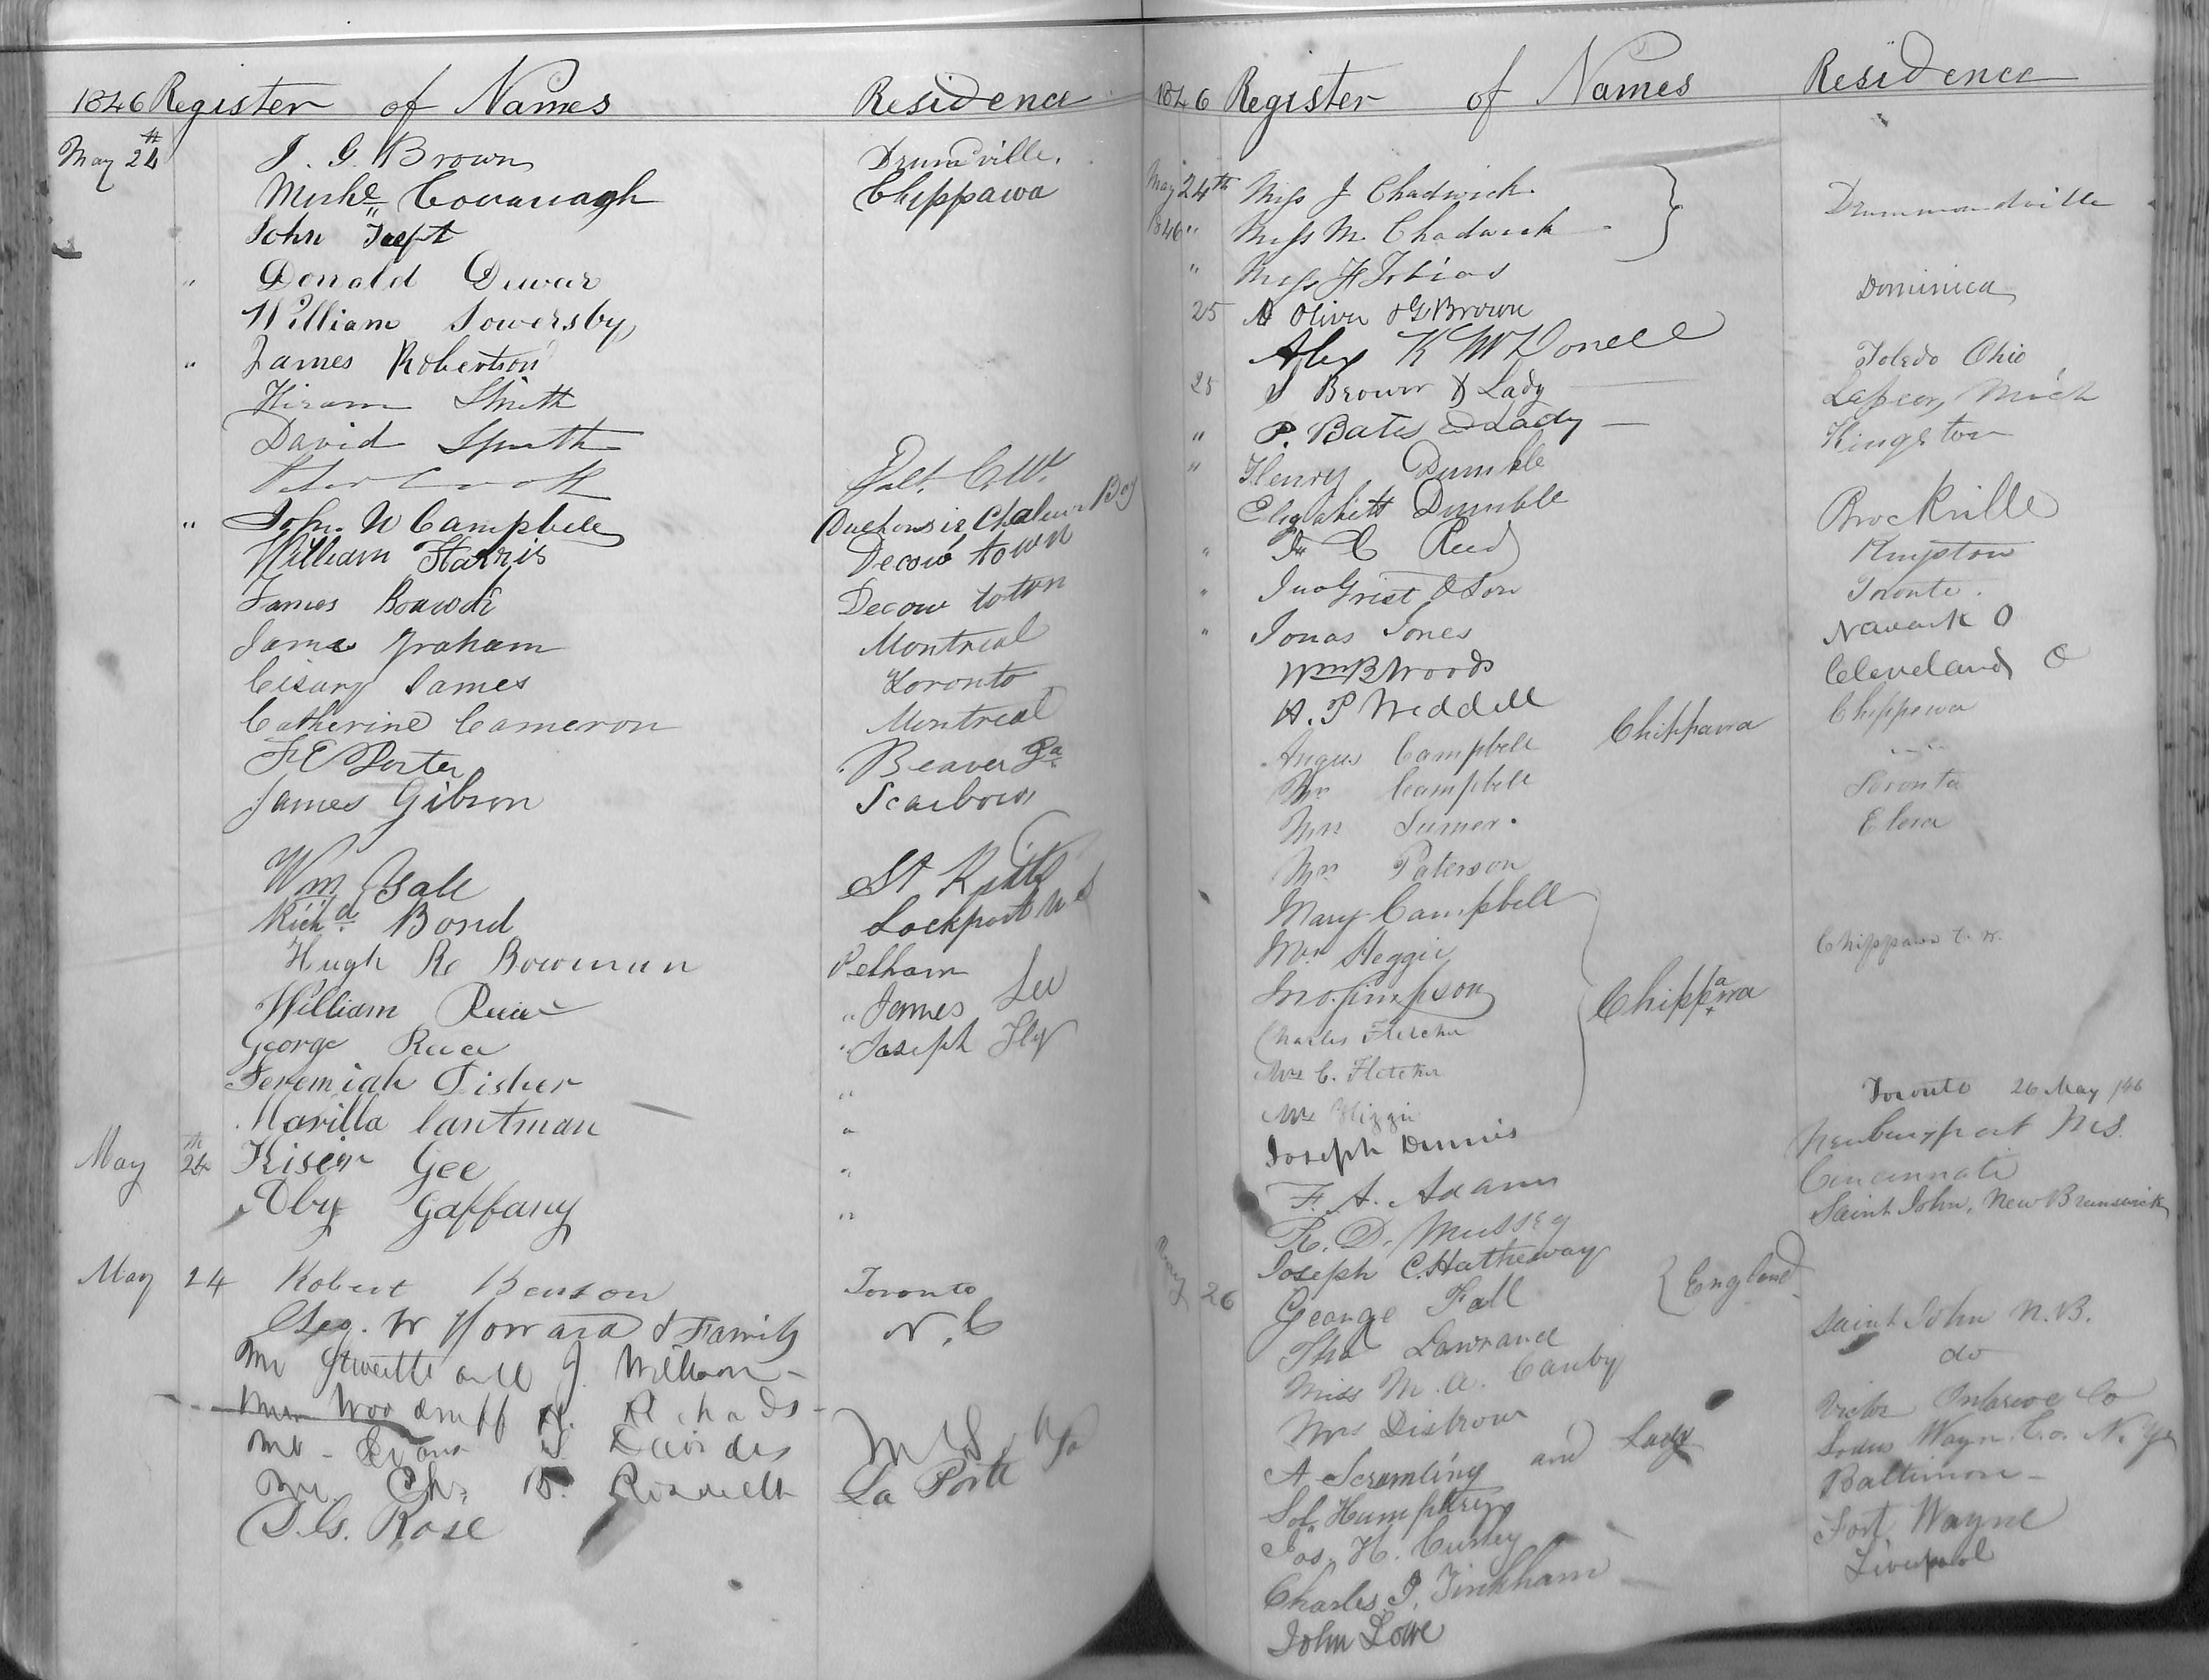 1846 Register of Names Residence
May 24th J. G. Brown Drumville.
Miche Cavanagh Chippawa
John
" Donald Dewar
William Sowersby
" James Robertson
Hiram Smith
David Smith
Peter Cook Galt. C.W.
" John. W Campbell Chaleur Bay
William Harris Decow town
James Decow toton
James Graham Montreal
James Toronto
Catherine Cameron Montreal
F E Porter Beaver Pa
James Gibson Scarboro
Wm Gale St Kitts
Richd Bond Lockport
Hugh Re Bowman Pelham
William Rice " James Lee
George Race " Joseph Fly
Jeremiah Fisher "
Marilla Cantman "
May 24th Gee "
Gaffany "
May 24 Robert Benson Toronto
Geo. W Howard & Family N. C
Mr and J.
Mrs Woodruff Richards
Mr - Evans S. Davides
Mr. Chs
D. G. Rose La Porte
1846 Register of Names Residence
May 24th Miss J Chadwick
1846 " Miss M. Chadwick Drummondville
" Miss H Tobias
25 A Oliver & G Brown Dominica
Alex K McDonell
25 S Brown & Lady Toledo Ohio
" P. Bates & Lady Lapeer, Mich
" Henry Dumble Kingston
Elizabeth Dumble
" Reed Brockville
" Jno Grist & Son Kingston
" Jonas Jones Toronto.
Wm B Woods Newark O
H. P Weddell Cleveland O
Angus Campbell Chippawa Chippewa
Mr Campbell
Mrs Toronto
Mrs Paterson Elora
Mary Campbell
Mrs Heggie Chippawa C. W.
Jno. Simpson Chippawa
Charles Fletcher
Mrs C. Fletcher
Mrs
Joseph Dennis Toronto 26 May /46
F. A. Adams Newburyport Ms.
R. D. Mussey Cincinnati
Joseph C. Hatheway Saint John, New Brunswick
May 26 George Fall England
Thos Lawrance
Miss M. A. Canby Saint John N.B.
Mrs Distrow do
A. Scramling and Lady Victor Ontario Co
Sol. Humphrey Sodus Wayne Co. N. Y
Jos. H. Curley Baltimore
Charles J. Tinkham Fort Wayne
John Lowe Liverpool